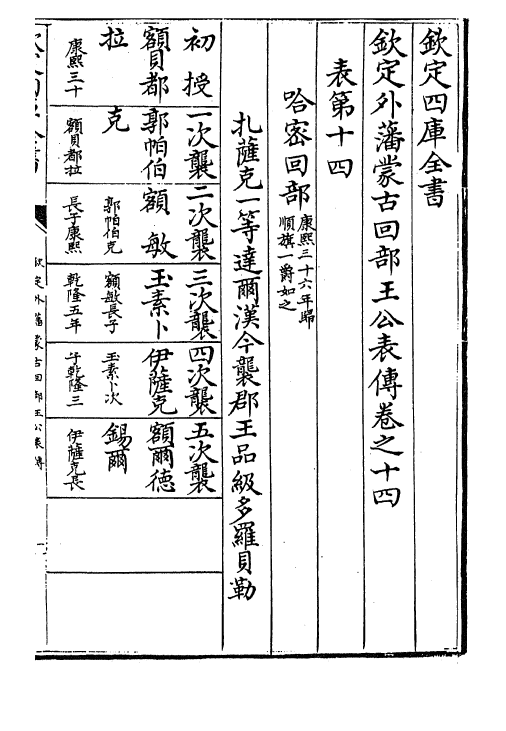 欽定四庫全書
欽定外藩蒙古回部王公表傳卷之十四
表第十四
哈密回部康熙三十六年歸
順旗一爵如之
扎薩克一等達爾漢今襲郡王品級多羅貝勒
初授
額貝都
拉
康熙三十
一次襲
郭帕伯
克
額貝都拉
二次襲
額敏
郭帕伯克
長子康熙
三次襲
玉素卜
額敏長子
乾隆五年
四次襲
伊薩克
玉素卜次
子乾隆三
五次襲
額爾德
錫爾
伊薩克長
欽定外藩蒙古回部王公表傳